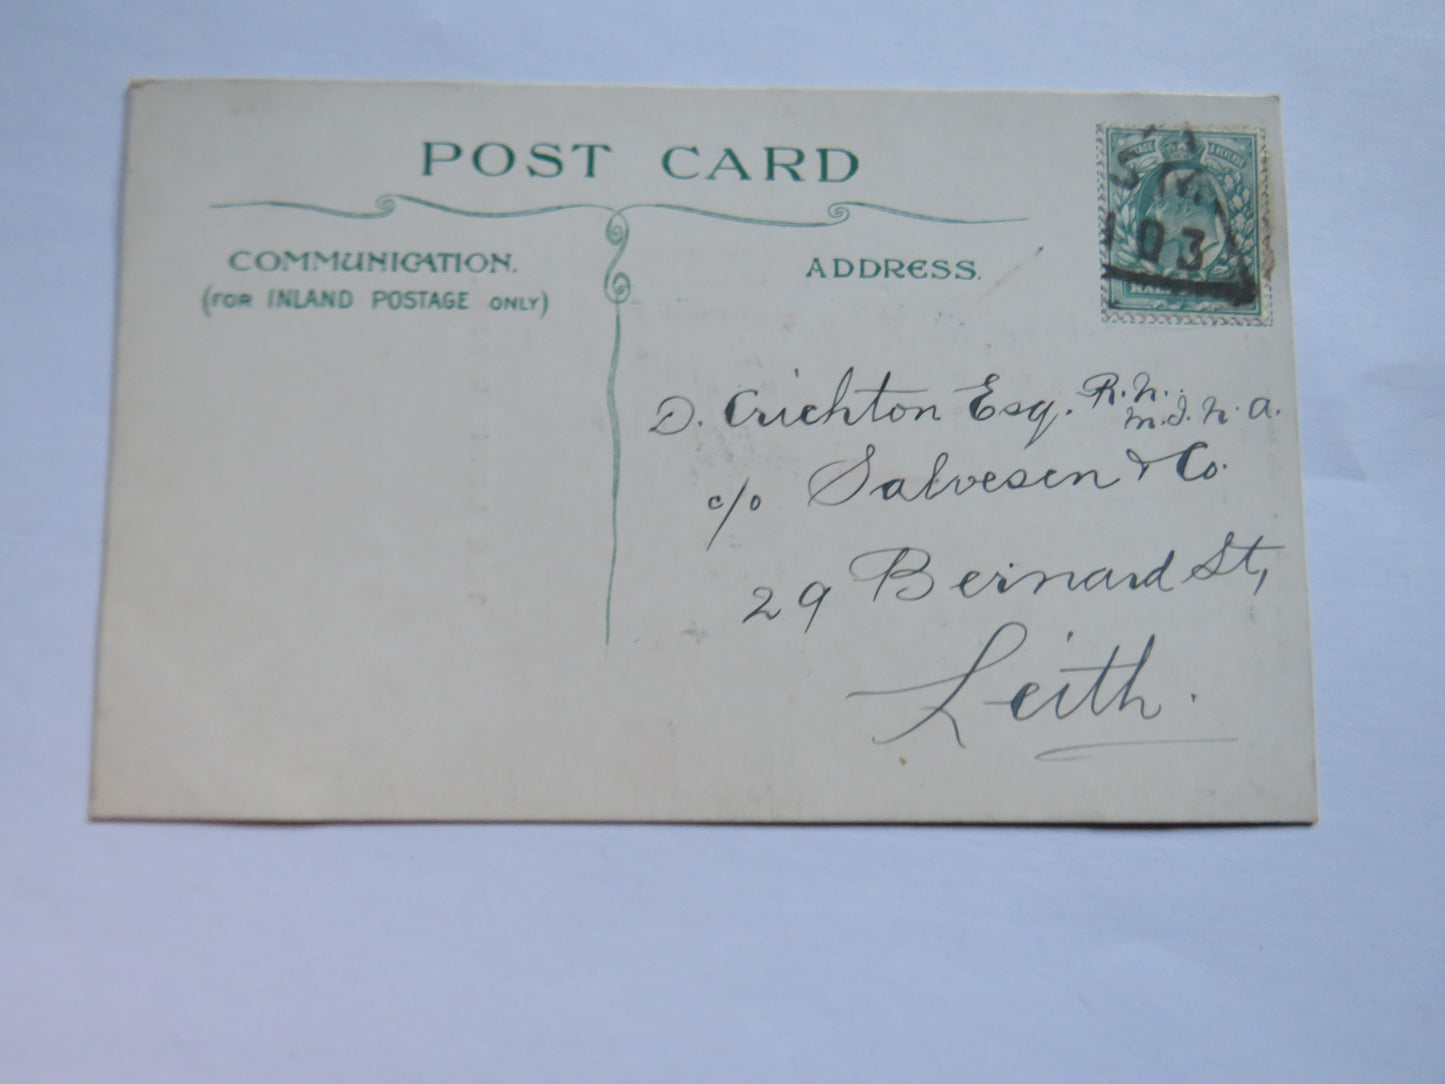 POST CARD
COMMUNICATION.
(FOR INLAND POSTAGE ONLY)
ADDRESS.
103
D. Crichton Esq. R.N.
M.I.N.A.
c/o Salvesen & Co.
29 Bernard St,
Leith.